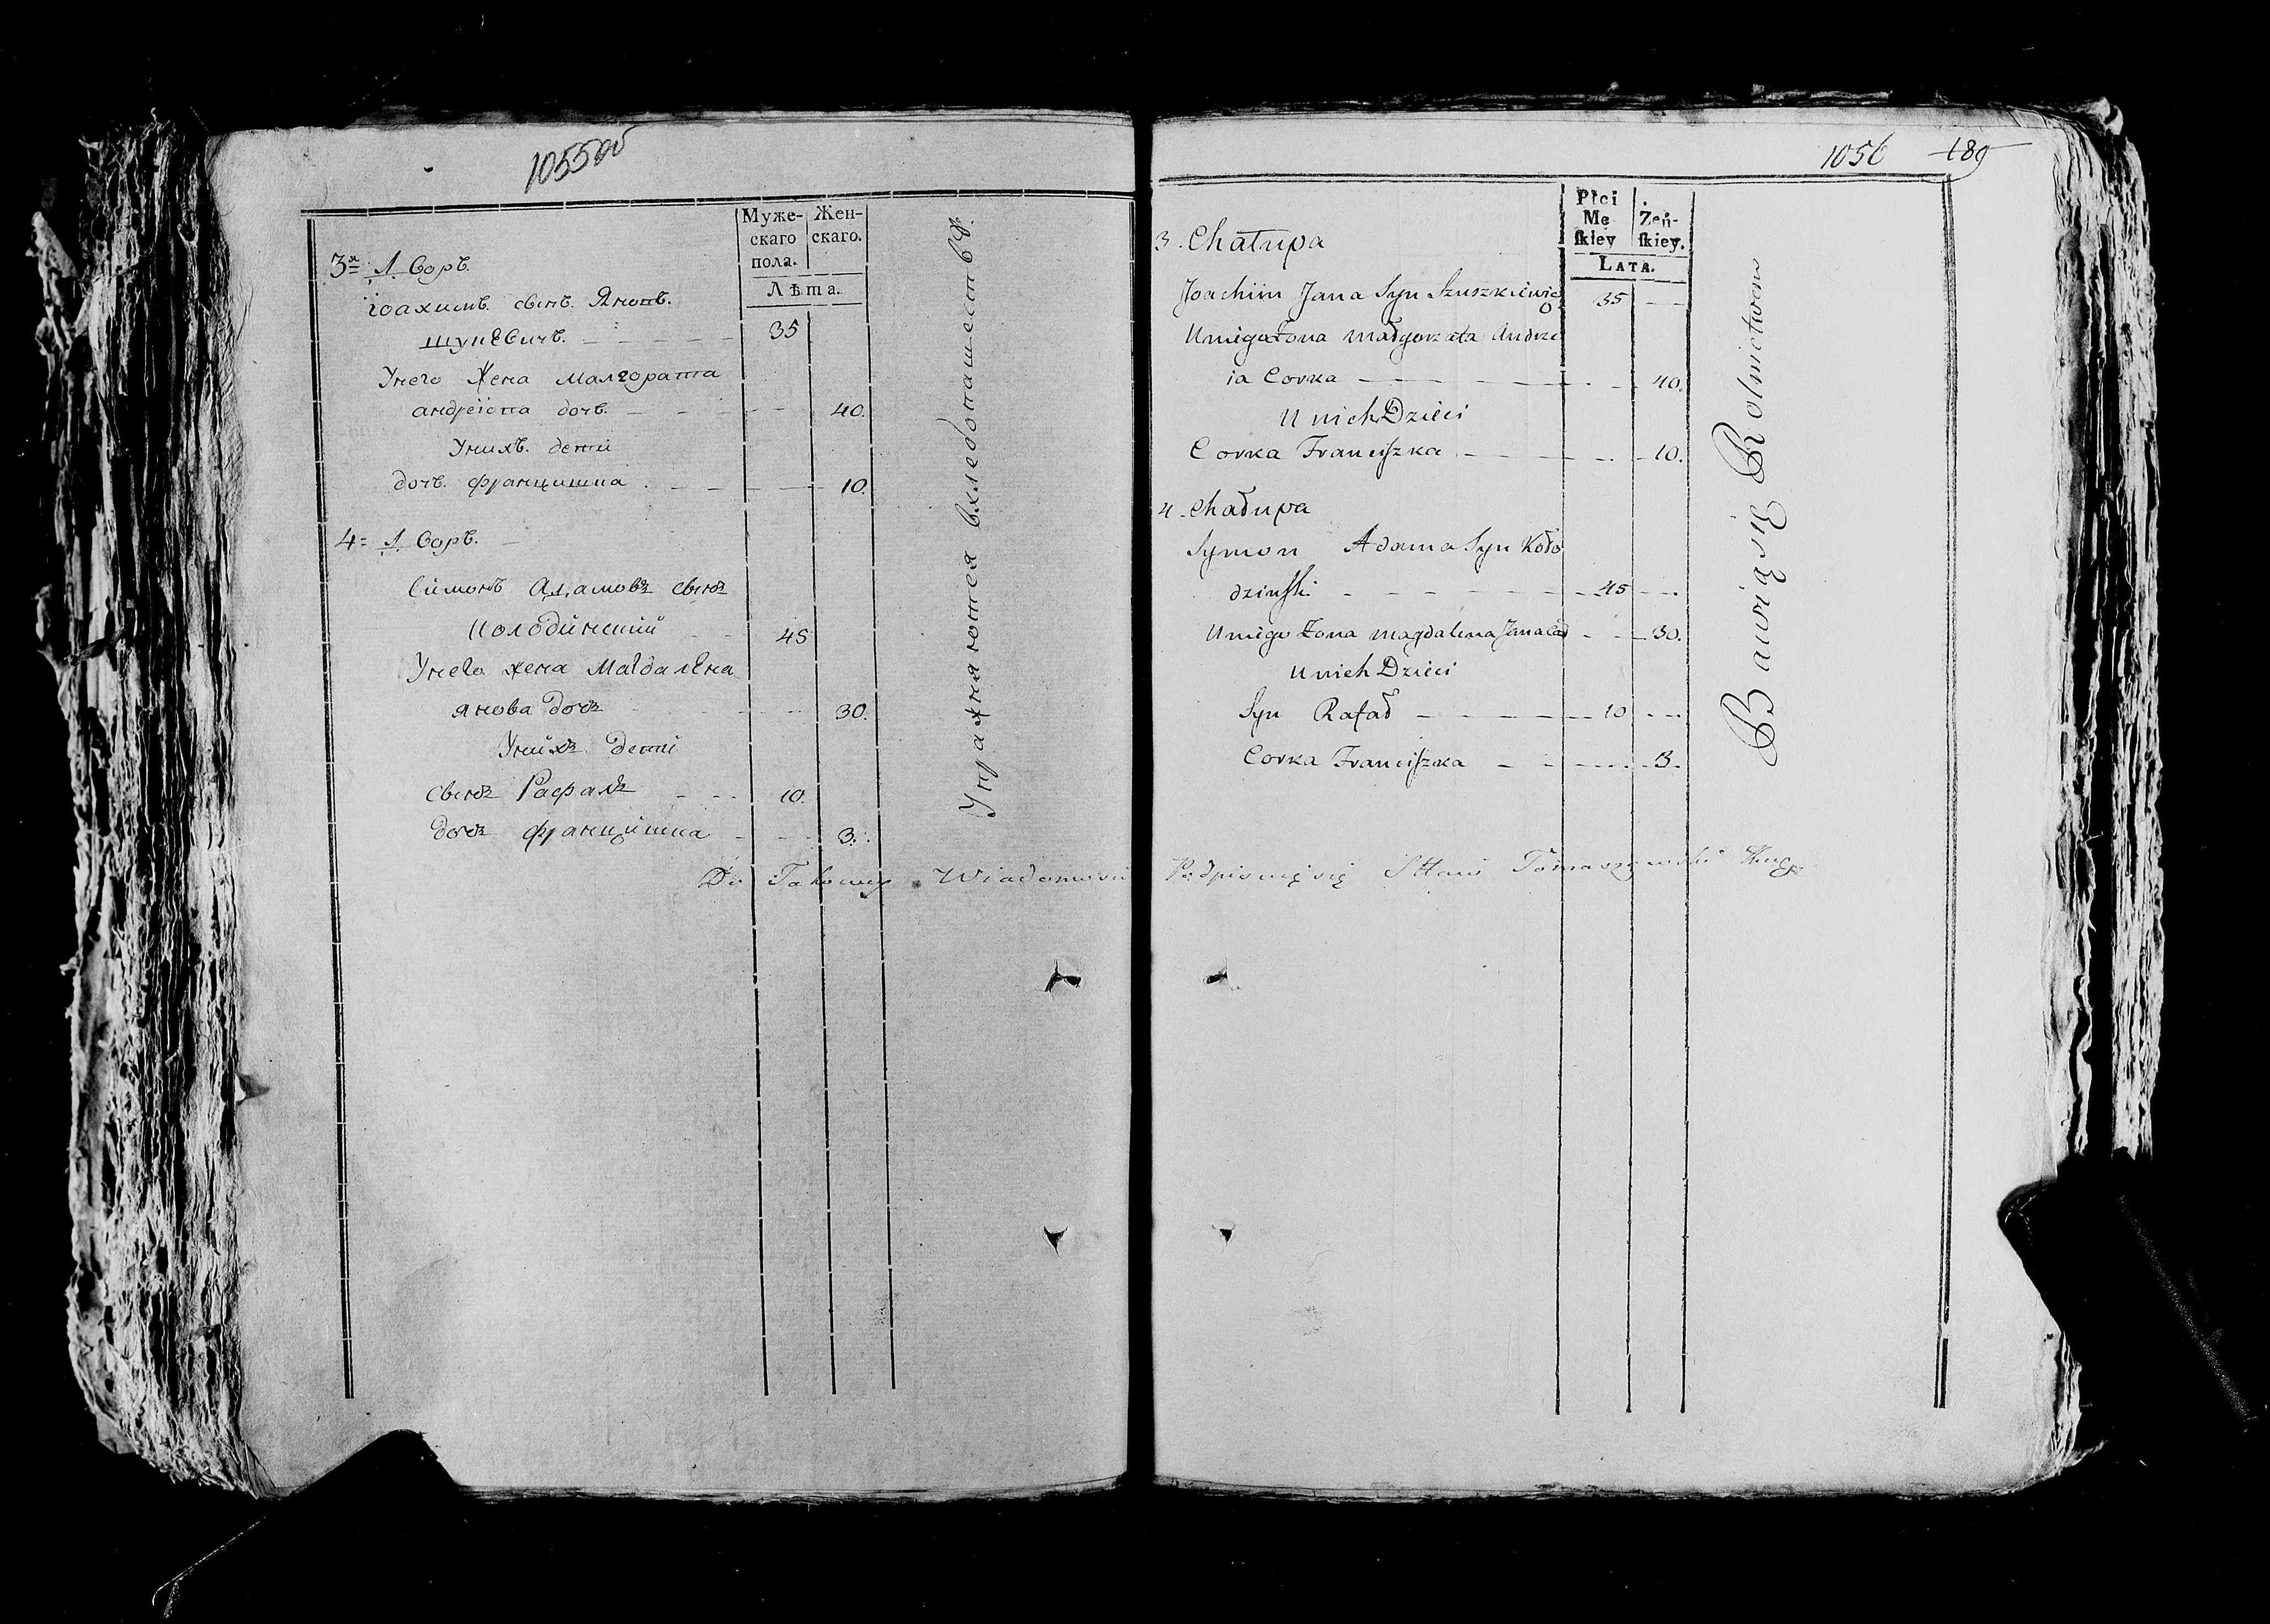 1055об
Муже-
скаго
пола.
Жен-
скаго.
Лѣта.
3я Дворъ.
іоахимъ. сынъ. Яновъ.
шушкевичъ. 35
Унего Жена малгората
андреіова дочь. 40.
Унихъ. дети
дочь. францишка 10.
4= Дворъ.
Симонъ Адамовъ сынъ
Колодинский 45
Унего жена Магдалена
янова дочь 30.
Унихъ дети
сынъ Рафалъ 10.
дочь францишка 3.
Упражняются вхлебопашествѣ.
1056 189
Płci
Mę
ſkiey
Zeń-
ſkiey.
LATA.
3. Chałupa
Joachim Jana Syn Szuszkiewic 35
Uniego Żona Małgorzata Andrze
ia Corka 40.
U nich Dzieci
Corka Franciſzka 10.
4. Chałupa
Symon Adama Syn Koło
dzinſki 45
Uniego Żona Magdalena Jana 30.
Unich Dzieci
Syn Rafał 10
Corka Franciſzka 3.
Bawią się Rolnictwem
Do Takowey Wiadomosci Podpisuię się Tomaszewski